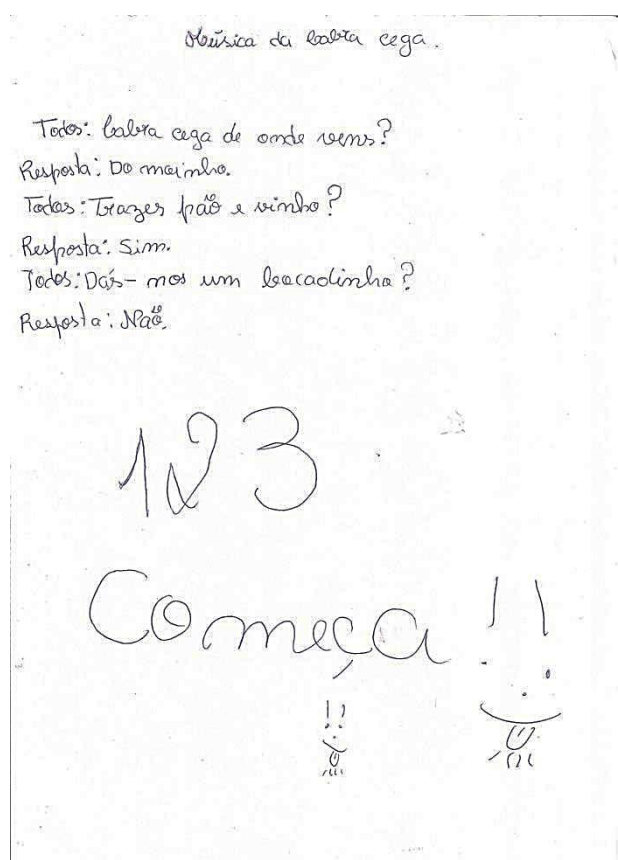 Música da cabra cega.
Todos: Cabra cega de onde vens?
Resposta: Do moinho.
Todos: Trazes pão e vinho?
Resposta: Sim.
Todos: Dás-nos um bocadinho?
Resposta: Não.
1 2 3
Começa!!
!!